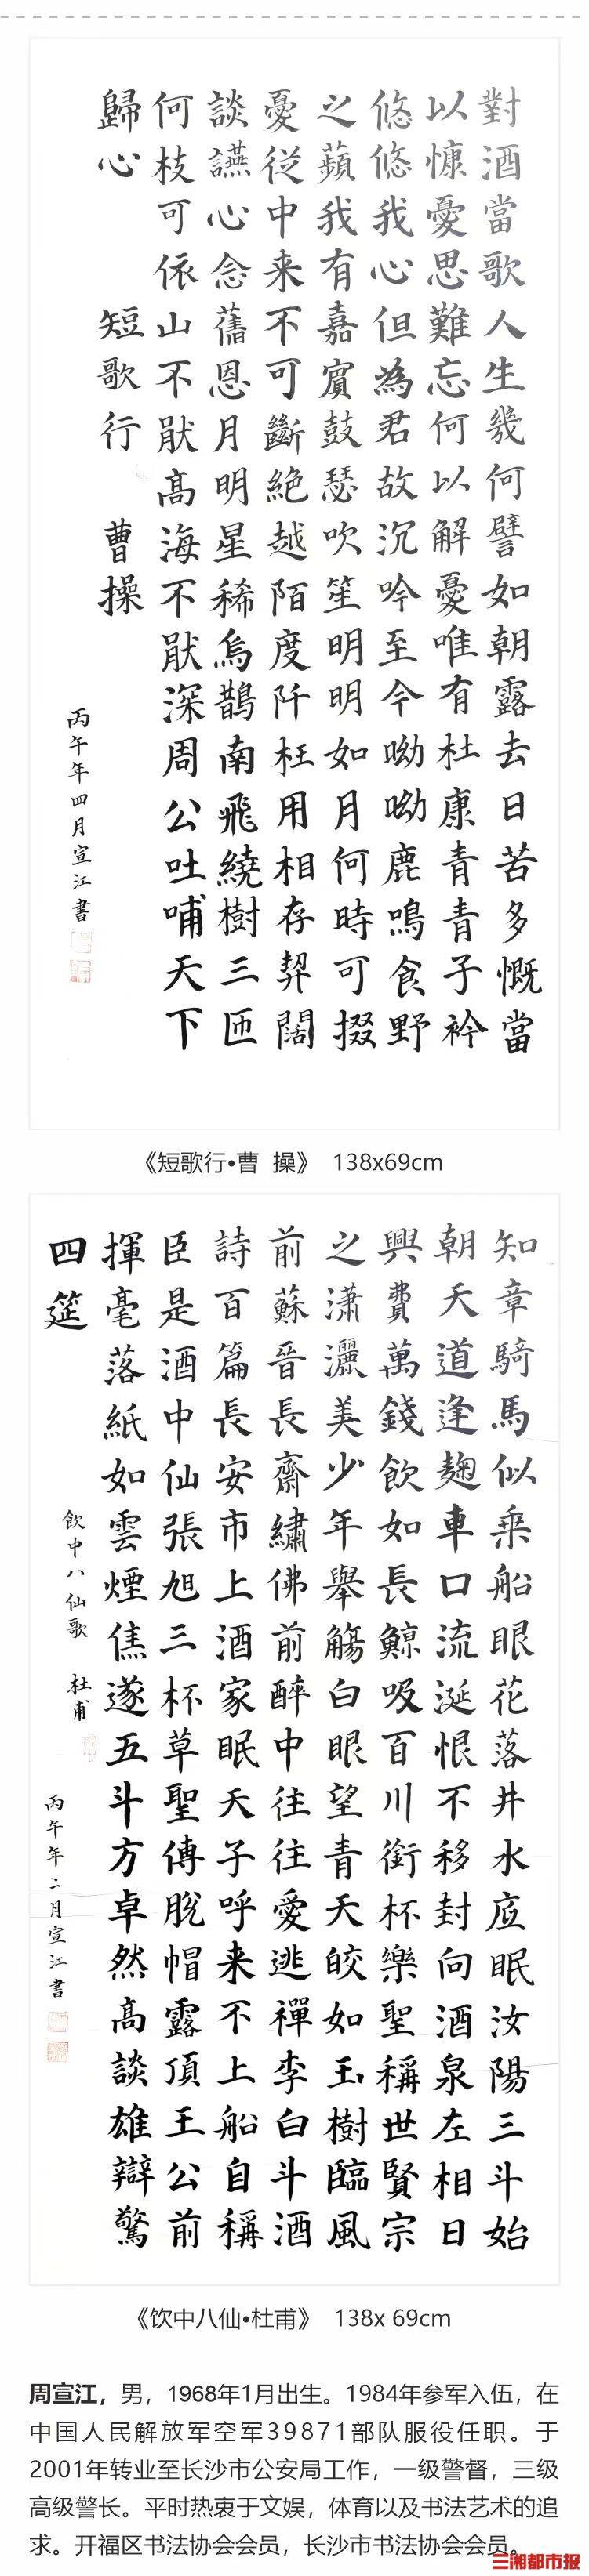 對酒當歌人生幾何譬如朝露去日苦多慨當
以慷憂思難忘何以解憂唯有杜康青青子衿
悠悠我心但為君故沉吟至今呦呦鹿鳴食野
之蘋我有嘉賓鼓瑟吹笙明明如月何時可掇
憂從中来不可斷絕越陌度阡枉用相存契闊
談讌心念舊恩月明星稀烏鵲南飛繞樹三匝
何枝可依山不猒髙海不猒深周公吐哺天下
歸心 短歌行 曹操
丙午年四月宣江書
《短歌行•曹 操》 138x69cm
知章騎馬似乘船眼花落井水底眠汝陽三斗始
朝天道逢麹車口流涎恨不移封向酒泉左相日
興費萬錢飲如長鯨吸百川銜杯樂聖稱世賢宗
之瀟灑美少年舉觴白眼望青天皎如玉樹臨風
前蘇晉長齋繡佛前醉中往往愛逃禪李白斗酒
詩百篇長安市上酒家眠天子呼来不上船自稱
臣是酒中仙張旭三杯草聖傳脫帽露頂王公前
揮毫落紙如雲煙焦遂五斗方卓然髙談雄辯驚
四筵
飲中八仙歌 杜甫
丙午年二月宣江書
《饮中八仙•杜甫》 138x 69cm
周宣江，男，1968年1月出生。1984年参军入伍，在
中国人民解放军空军39871部队服役任职。于
2001年转业至长沙市公安局工作，一级警督，三级
高级警长。平时热衷于文娱，体育以及书法艺术的追
求。开福区书法协会会员，长沙市书法协会会员。
三湘都市报